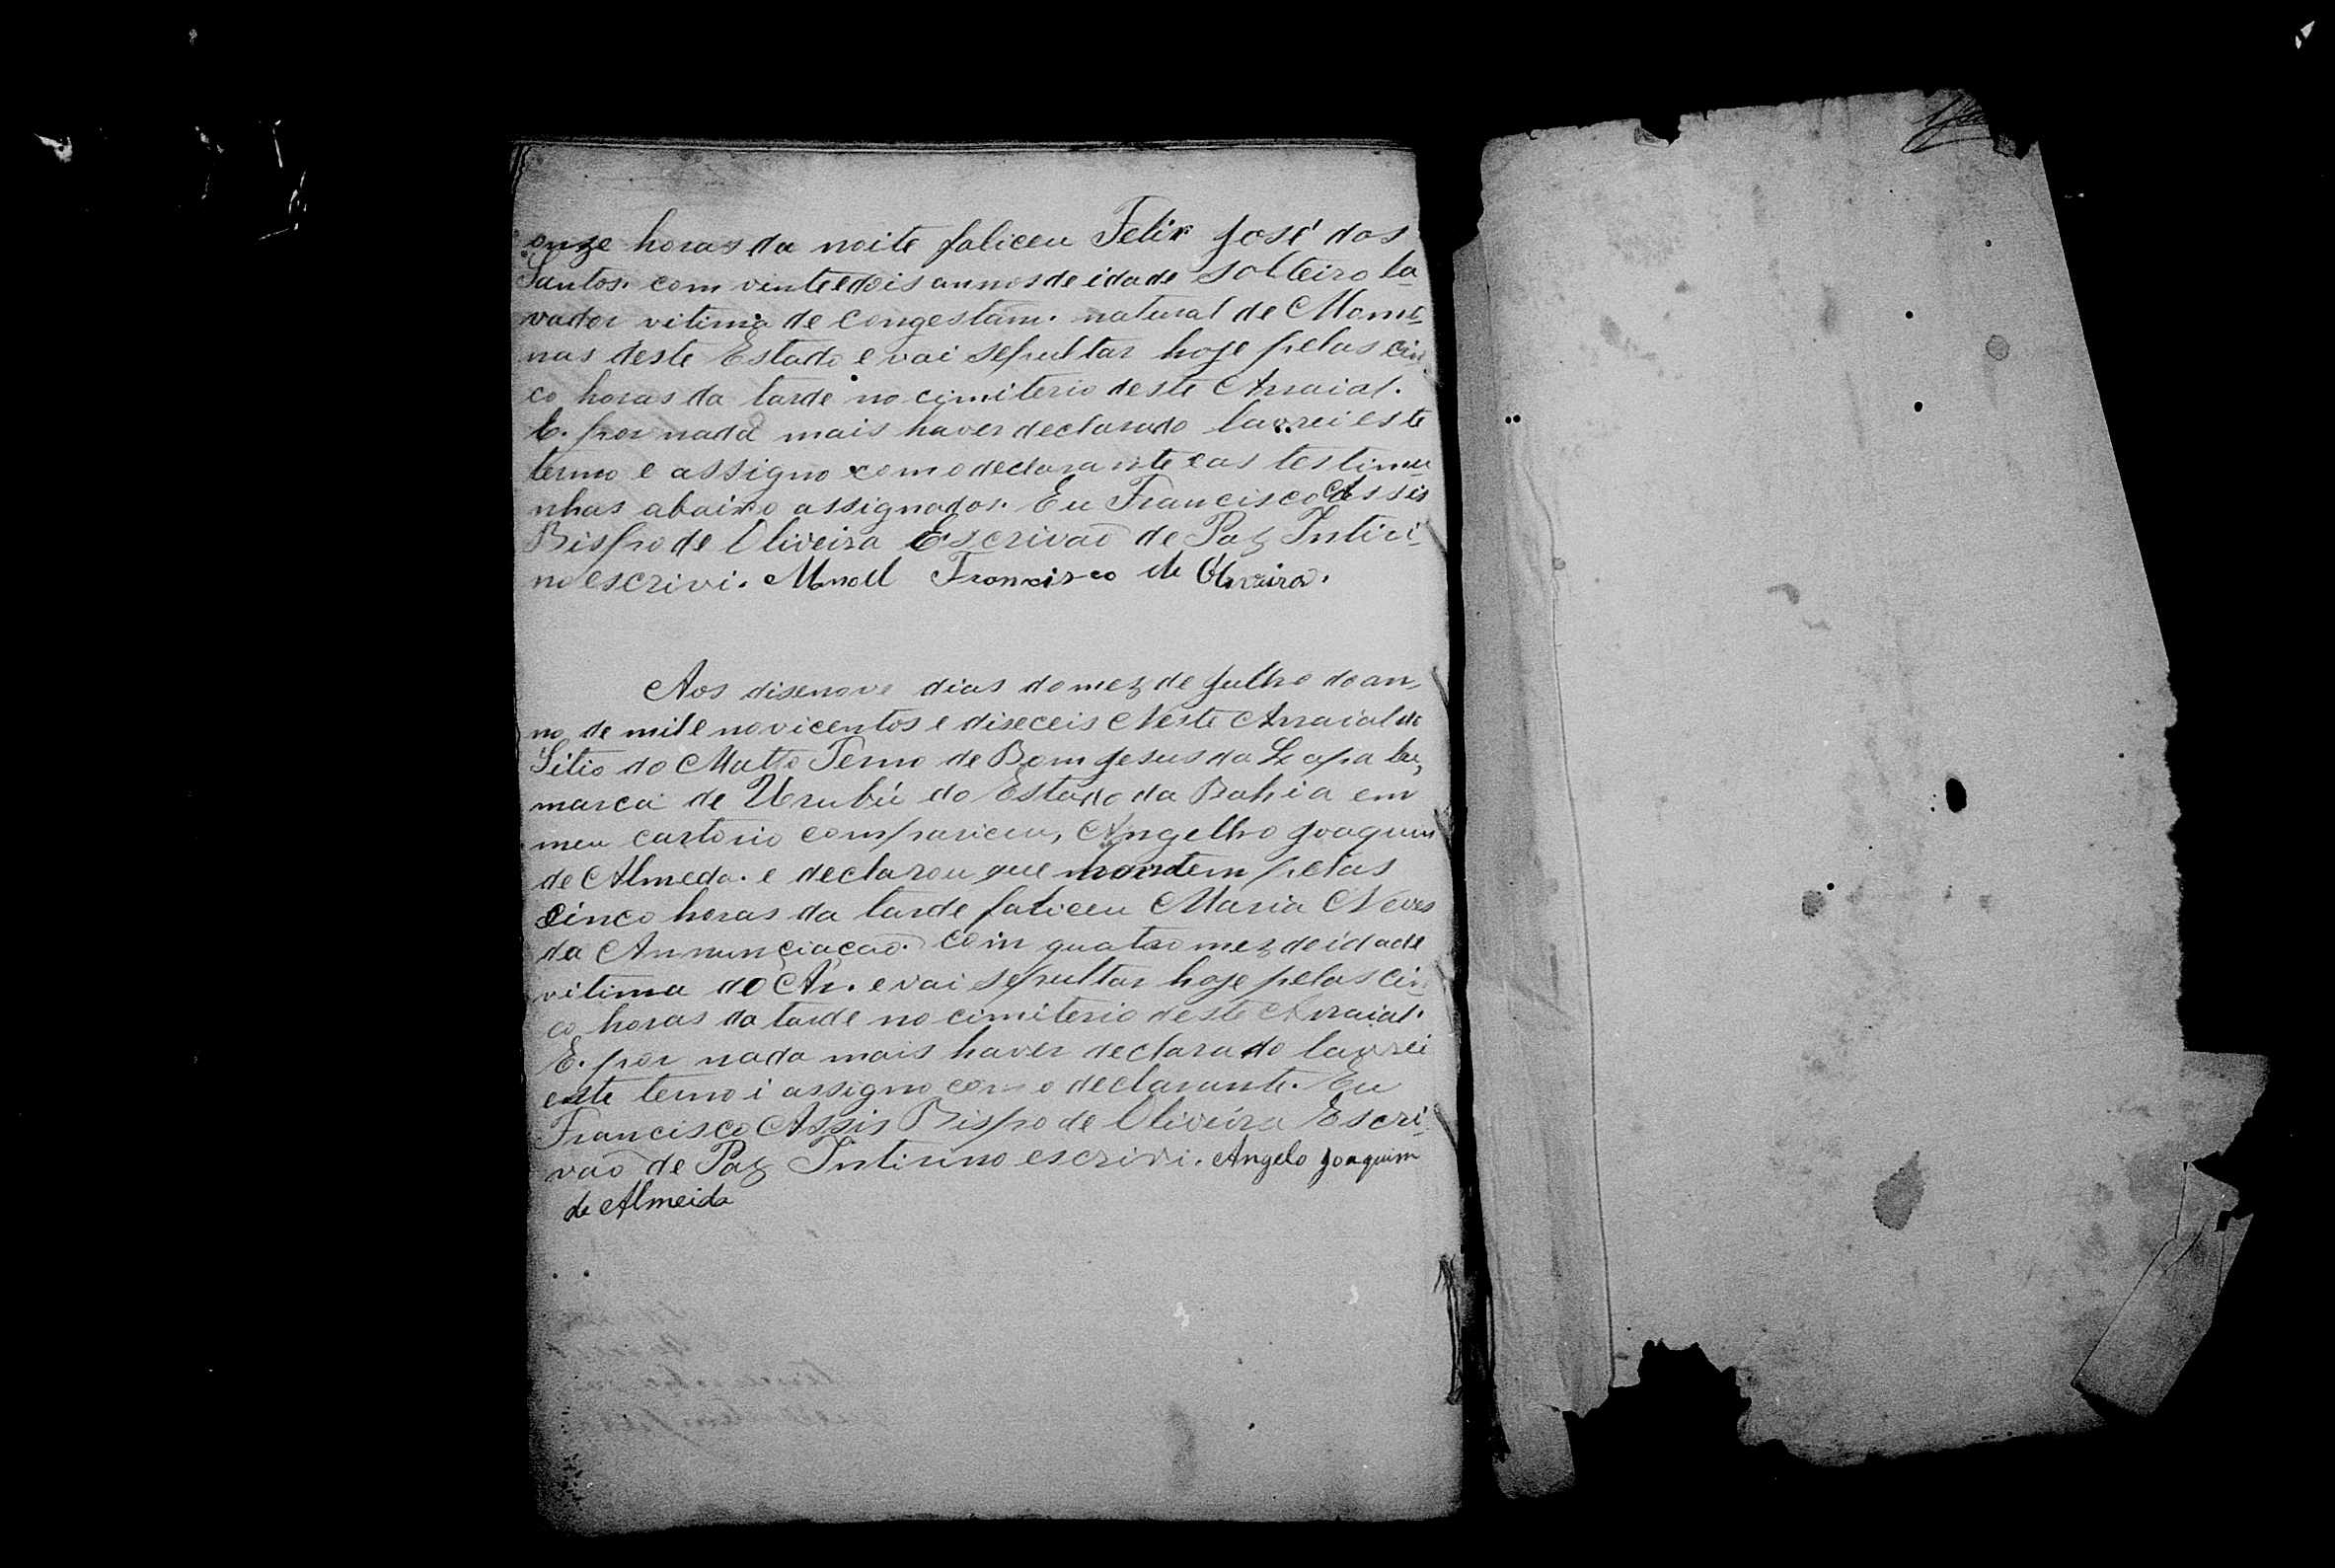 onze horas da noite faliceu Felix José dos
Santos. com vinte e dois annos de idade solteiro la-
vador vitima de congestam. natural de
nas deste Estado e vai sepultar hoje pelas cin
co horas da tarde no cimiterio deste Arraial.
E. por nada mais haver declarado lavrei este
termo e assigno com o declarante e as testimu-
nhas abaixo assignados. Eu Francisco Assis
Bispo de Oliveira Escrivaõ de Paz Intiri-
no escrivi. Manoel Francisco de Oliveira.
Aos disenove dias do mez de Julho do an-
no de mil e novicentos e diseceis Neste Arraial do
Sitio do Matto Termo de Bom Jesus da Lapa
marca de Urubú do Estado da Bahia em
meu cartorio compariceu, Angelho Joaquim
de Almeda. e declarou que hontem pelas
cinco horas da tarde faliceu Maria Neves
da Annunciação. com quatro mez de idade
vitima do Ar. e vai sepultar hoje pelas cin
co horas da tarde no cimiterio deste Arraial.
E. por nada mais haver declarado lavrei
este termo i assigno com o declarante. Eu
Francisco Assis Bispo de Oliveira Escri-
vaõ de Paz Intirino escrivi. Angelo Joaquim
de Almeida